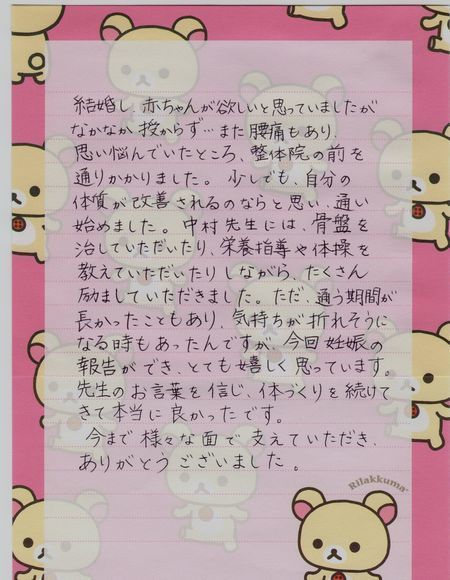 結婚し、赤ちゃんが欲しいと思っていましたが
なかなか授からず…また腰痛もあり、
思い悩んでいたところ、整体院の前を
通りかかりました。少しでも、自分の
体質が改善されるのならと思い、通い
始めました。中村先生には、骨盤を
治していただいたり、栄養指導や体操を
教えていただいたりしながら、たくさん
励ましていただきました。ただ、通う期間が
長かったこともあり、気持ちが折れそうに
なる時もあったんですが、今回妊娠の
報告ができ、とても嬉しく思っています。
先生のお言葉を信じ、体つくりを続けて
きて本当に良かったです。
今まで様々な面で支えていただき、
ありがとうございました。
Rilakkuma